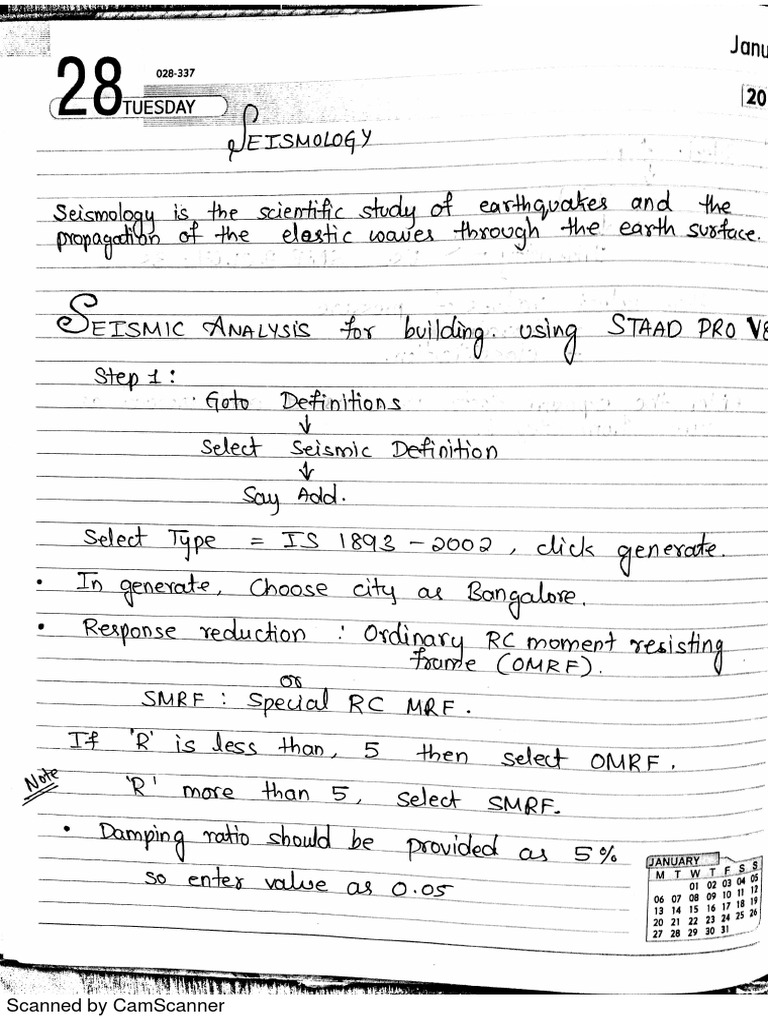 Janu
28
028-337
TUESDAY
20
SEISMOLOGY
Seismology is the scientific study of earthquakes and the
propagation of the elastic waves through the earth surface.
SEISMIC ANALYSIS for building using STAAD PRO V8
Step 1:
Goto Definitions
↓
Select Seismic Definition
↓
Say Add.
Select Type = IS 1893 - 2002, click generate.
• In generate, Choose city as Bangalore.
• Response reduction : Ordinary RC moment resisting
frame (OMRF).
or
SMRF : Special RC MRF.
If 'R' is less than, 5 then select OMRF.
Note
'R' more than 5, select SMRF.
• Damping ratio should be provided as 5%
so enter value as 0.05
JANUARY
M T W T F S S
01 02 03 04 05
06 07 08 09 10 11 12
13 14 15 16 17 18 19
20 21 22 23 24 25 26
27 28 29 30 31
Scanned by CamScanner